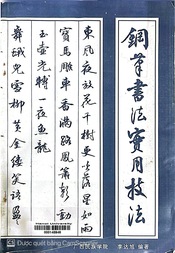 鋼筆書法實用技法
東風夜放花千樹更吹落星如雨
寶馬雕車香滿路鳳簫聲動
玉壺光轉一夜魚龍
舞蛾兒雪柳黃金縷笑語
李达旭 编著
Được quét bằng CamScanner